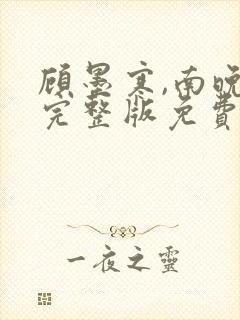 顾墨寒,南晚
完整版免費
一夜之靈